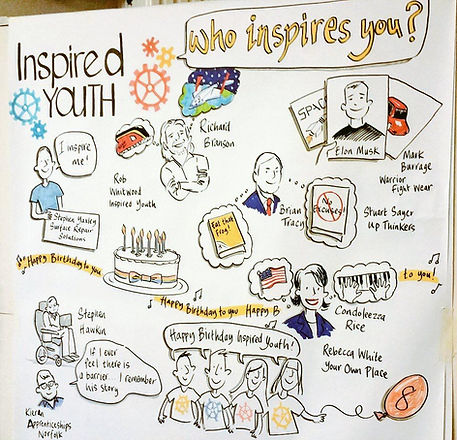 Inspired
YOUTH
who inspires you?
I inspire
me!
Stephen Yaxley
Surface Repair
Solutions
Rob
Whitwood
Inspired Youth
Richard
Branson
SPACE
Elon Musk
Mark
Burrage
Warrior
Fight Wear
Eat that
frog!
Brian
Tracy
No
Excuses!
Stuart Sayer
Up Thinkers
Happy Birthday to you
Happy Birthday to you Happy B
to you!
Condoleezza
Rice
Rebecca White
Your Own Place
Stephen
Hawkin
If I ever
feel there is
a barrier... I remember
his story
Kieran
Apprenticeships
Norfolk
Happy Birthday Inspired Youth!
8